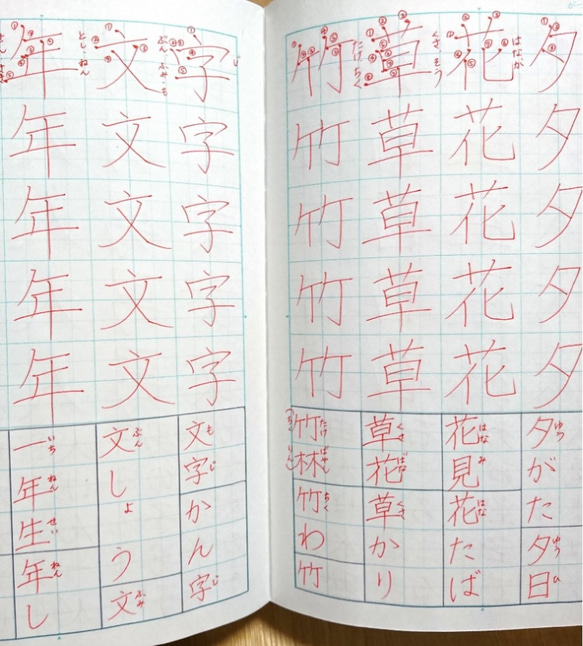 夕
夕
夕
夕
夕
夕がた
ゆう
夕日
ゆうひ
はな か
花
花
花
花
花
花見
はなみ
花たば
はな
くさ そう
草
草
草
草
草
草花
くさばな
草かり
くさ
たけ ちく
竹
竹
竹
竹
竹
竹林
たけばやし
竹わ
ちく
竹
じ
字
字
字
字
字
文字
もじ
かん字
じ
ぶん ふみ・も
文
文
文
文
文
文しょう
ぶん
文
ふみ
とし ねん
年
年
年
年
年
一年生
いちねんせい
年し
ねん